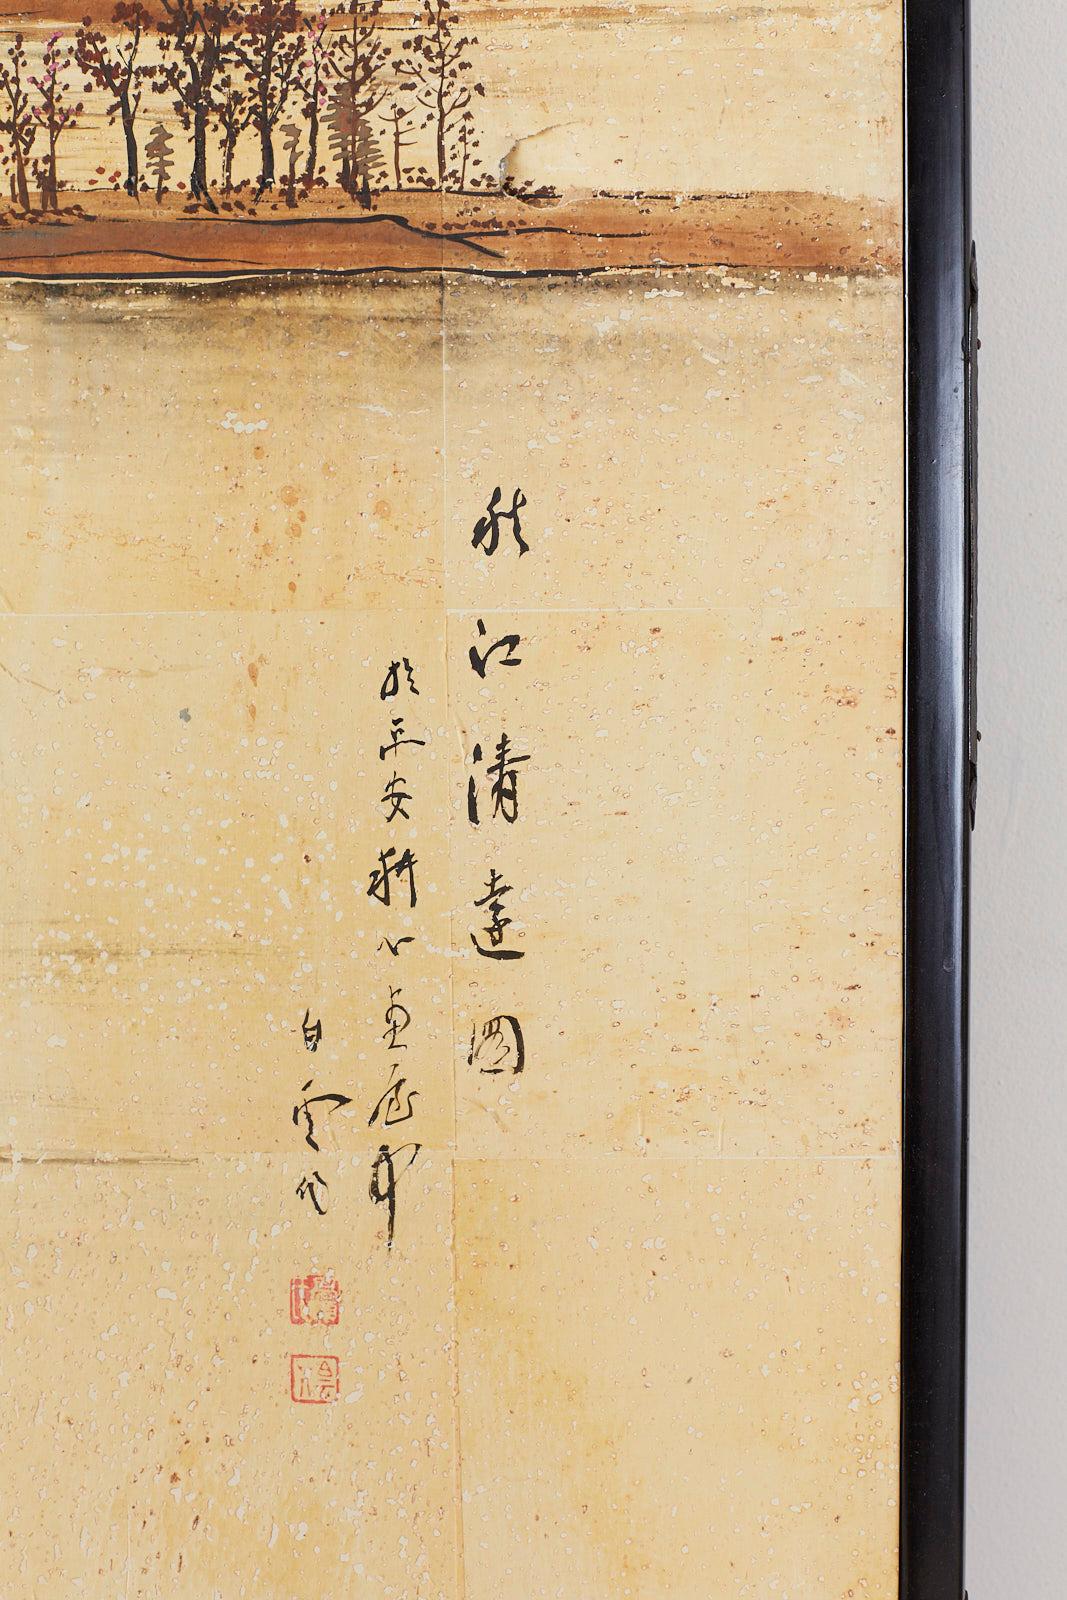 秋江清遠圖
於平安耕心画屋中
白雲作